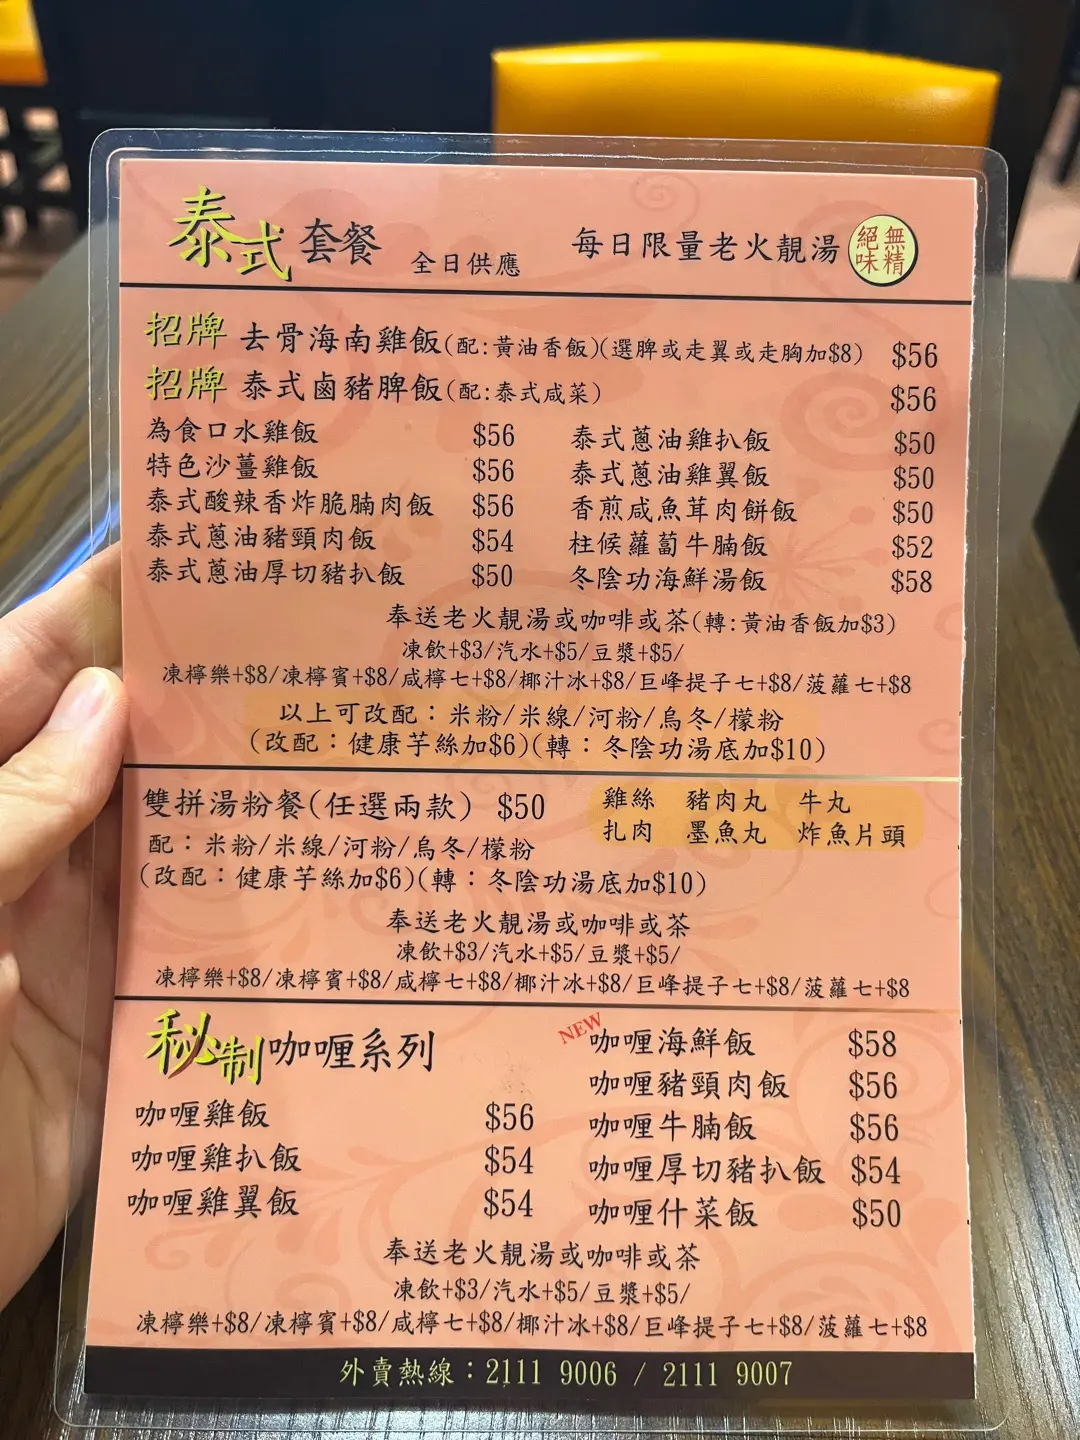 泰式套餐 全日供應 每日限量老火靚湯 絕味無精
招牌 去骨海南雞飯(配:黃油香飯)(選脾或走翼或走胸加$8) $56
招牌 泰式鹵豬脾飯(配:泰式咸菜) $56
為食口水雞飯 $56 泰式蔥油雞扒飯 $50
特色沙薑雞飯 $56 泰式蔥油雞翼飯 $50
泰式酸辣香炸脆腩肉飯 $56 香煎咸魚茸肉餅飯 $50
泰式蔥油豬頸肉飯 $54 柱候蘿蔔牛腩飯 $52
泰式蔥油厚切豬扒飯 $50 冬陰功海鮮湯飯 $58
奉送老火靚湯或咖啡或茶(轉:黃油香飯加$3)
凍飲+$3/汽水+$5/豆漿+$5/
凍檸樂+$8/凍檸賓+$8/咸檸七+$8/椰汁冰+$8/巨峰提子七+$8/菠蘿七+$8
以上可改配：米粉/米線/河粉/烏冬/檬粉
(改配：健康芋絲加$6)(轉：冬陰功湯底加$10)
雙拼湯粉餐(任選兩款) $50 雞絲 豬肉丸 牛丸
扎肉 墨魚丸 炸魚片頭
配：米粉/米線/河粉/烏冬/檬粉
(改配：健康芋絲加$6)(轉：冬陰功湯底加$10)
奉送老火靚湯或咖啡或茶
凍飲+$3/汽水+$5/豆漿+$5/
凍檸樂+$8/凍檸賓+$8/咸檸七+$8/椰汁冰+$8/巨峰提子七+$8/菠蘿七+$8
秘制咖喱系列
咖喱雞飯 $56
咖喱雞扒飯 $54
咖喱雞翼飯 $54
NEW 咖喱海鮮飯 $58
咖喱豬頸肉飯 $56
咖喱牛腩飯 $56
咖喱厚切豬扒飯 $54
咖喱什菜飯 $50
奉送老火靚湯或咖啡或茶
凍飲+$3/汽水+$5/豆漿+$5/
凍檸樂+$8/凍檸賓+$8/咸檸七+$8/椰汁冰+$8/巨峰提子七+$8/菠蘿七+$8
外賣熱線：2111 9006 / 2111 9007